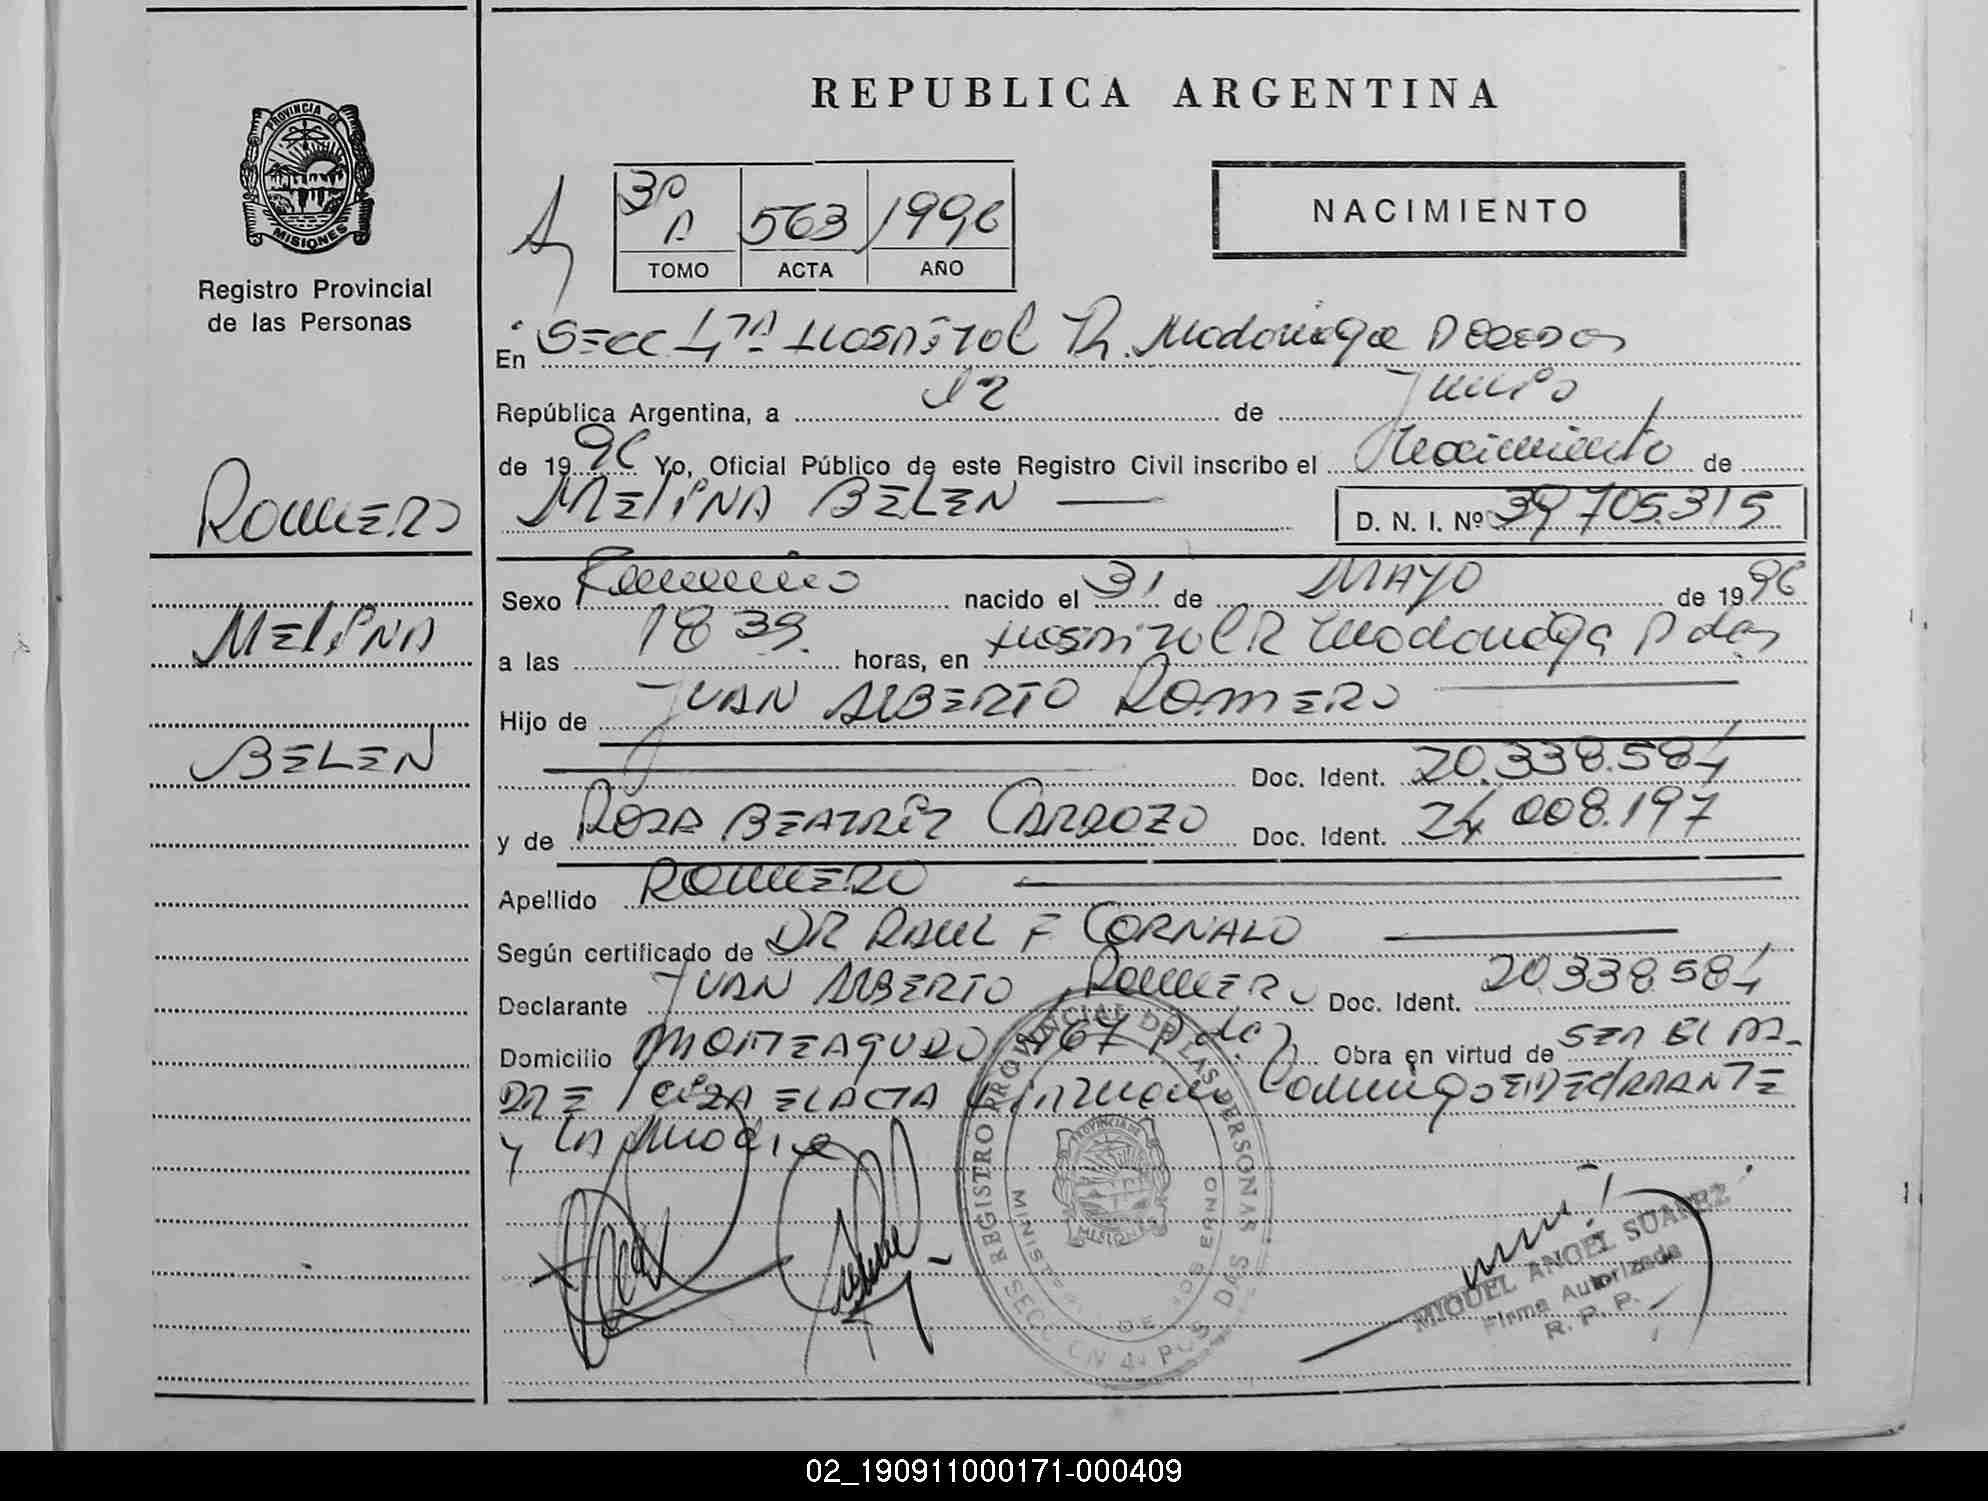 REPUBLICA ARGENTINA
PROVINCIA DE
MISIONES
Registro Provincial
de las Personas
3º A 563 1996
TOMO ACTA AÑO
NACIMIENTO
En Secc 4ta Hospital R. Madariaga Posadas
República Argentina, a 12 de Junio
de 1996 Yo, Oficial Público de este Registro Civil inscribo el Nacimiento de
MELINA BELEN
D. N. I. Nº 39705.315
ROMERO
MELINA
BELEN
Sexo Femenino nacido el 31 de MAYO de 1996
a las 18 39. horas, en Hospital R Madariaga Pdas
Hijo de JUAN ALBERTO ROMERO
Doc. Ident. 20.338.584
y de ROSA BEATRIZ CARDOZO Doc. Ident. 24 008.197
Apellido ROMERO
Según certificado de DR RAUL F CORNALO
Declarante JUAN ALBERTO ROMERO Doc. Ident. 20.338.584
Domicilio MONTEAGUDO 467 Pdas Obra en virtud de SER EL PA-
DRE Leida EL ACTA firman Conmigo El DECLARANTE
y LA Madre
REGISTRO PROVINCIAL DE LAS PERSONAS
MINISTERIO DE GOBIERNO
PROVINCIA DE
MISIONES
SECCION 4a POSADAS
MIGUEL ANGEL SUAREZ
Firma Autorizada
R. P. P.
02_190911000171-000409